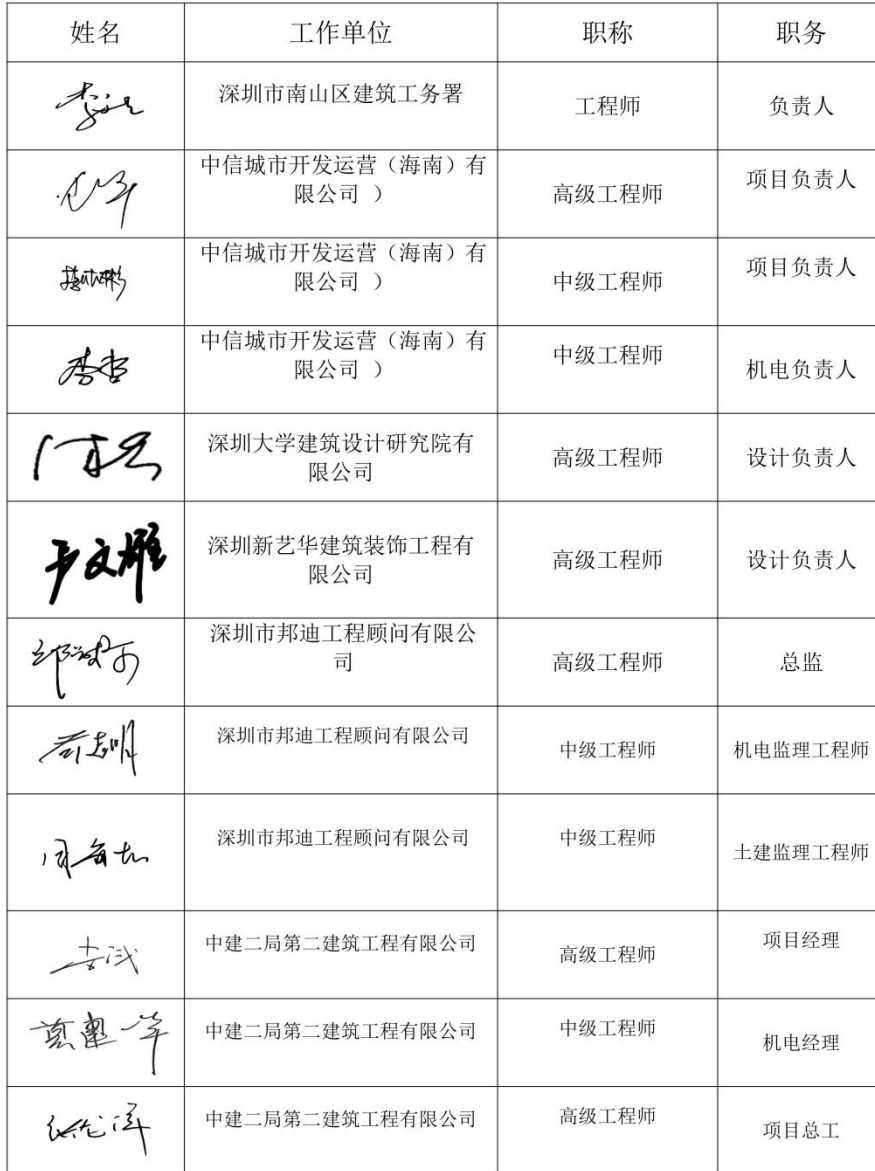 姓名 工作单位 职称 职务
深圳市南山区建筑工务署 工程师 负责人
中信城市开发运营（海南）有
限公司 ） 高级工程师 项目负责人
中信城市开发运营（海南）有
限公司 ） 中级工程师 项目负责人
李哲 中信城市开发运营（海南）有
限公司 ） 中级工程师 机电负责人
深圳大学建筑设计研究院有
限公司 高级工程师 设计负责人
尹文雄 深圳新艺华建筑装饰工程有
限公司 高级工程师 设计负责人
深圳市邦迪工程顾问有限公
司 高级工程师 总监
深圳市邦迪工程顾问有限公司 中级工程师 机电监理工程师
深圳市邦迪工程顾问有限公司 中级工程师 土建监理工程师
中建二局第二建筑工程有限公司 高级工程师 项目经理
中建二局第二建筑工程有限公司 中级工程师 机电经理
中建二局第二建筑工程有限公司 高级工程师 项目总工